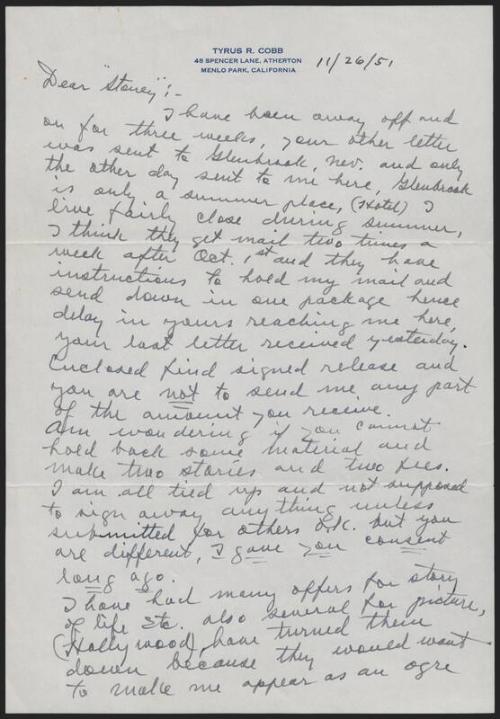 TYRUS R. COBB
48 SPENCER LANE, ATHERTON
MENLO PARK, CALIFORNIA
11/26/51
Dear "Stoney";-
I have been away off and
on for three weeks, your other letter
was sent to Glenbrook, Nev. and only
the other day sent to me here, Glenbrook
is only a summer place, (Hotel) I
live fairly close during summer,
I think they get mail two times a
week after Oct. 1st and they have
instructions to hold my mail and
send down in one package hence
delay in yours reaching me here,
your last letter received yesterday.
Enclosed find signed release and
you are not to send me any part
of the amount you receive.
Am wondering if you cannot
hold back some material and
make two stories and two fees.
I am all tied up and not supposed
to sign away anything unless
submitted for others O.K. but you
are different, I gave you consent
long ago.
I have had many offers for story
of life etc. also several for picture,
(Hollywood), have turned them
down because they would want
to make me appear as an ogre